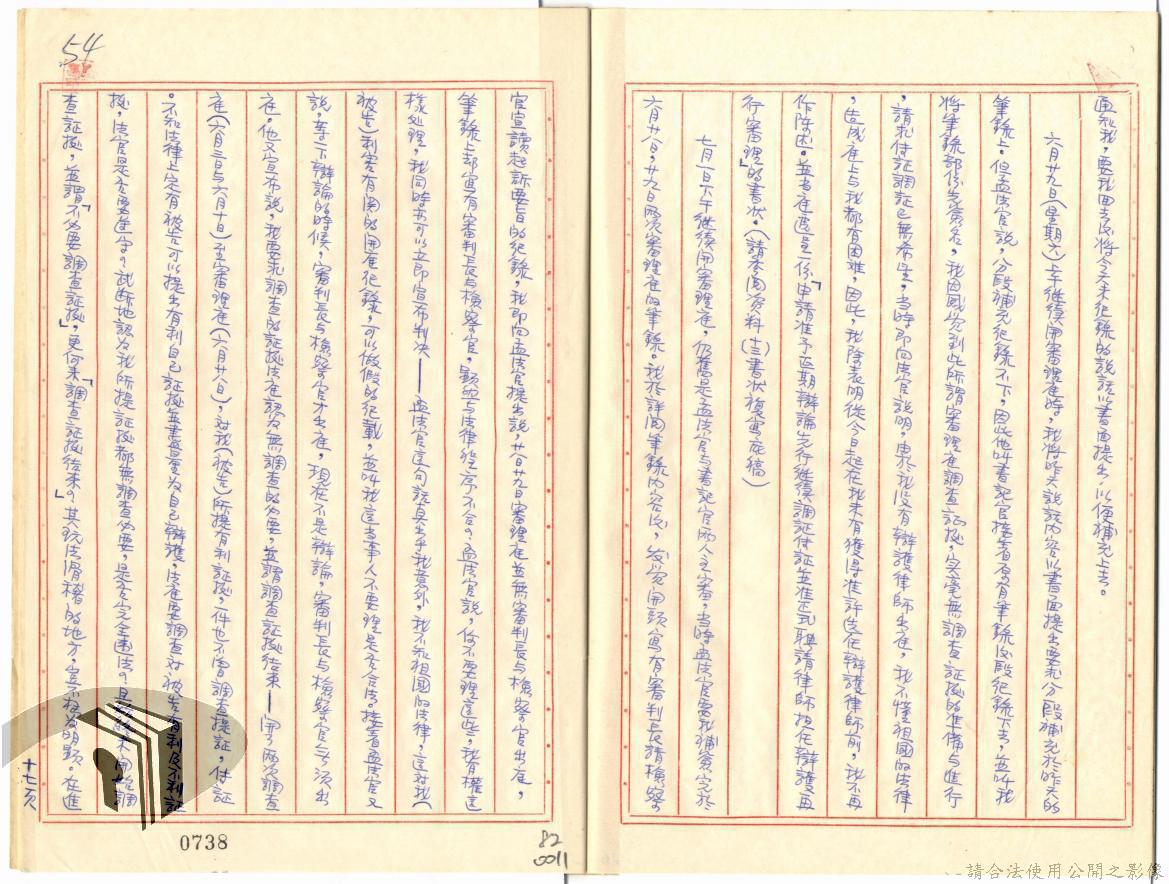 通知我,要我回去後將今天未紀錄的說話以書面提出,以便補充上去。
六月廿九日(星期六)上午繼續開審理庭時,我將昨天說話內容以書面提出要求分段補充於昨天的
筆錄上。但孟法官說,分段補充紀錄不下,因此他叫書記官接着原有筆錄後段紀錄下去,並叫我
將筆錄部份先簽名,我因感覺到此所謂審理庭調查証據,完毫無調查証據的準備與進行
,請求傳証調証已無希望,當時即向法官說明,由於我沒有辯護律師出庭,我不懂祖國的法律
,造成庭上与我都有困难,因此,我除表明從今日起在我未有獲得准許先任辯護律師前,我不再
作陳述。並当庭遞呈一份「申請准予延期辯論先行繼續調証傳証並准正式聘請律師担任辯護再
行審理」的書狀。(請查閱資料(十三)書狀複寫底稿)
七月一日下午繼續開審理庭,仍舊是孟法官与書記官两人主審,当時孟法官要我補簽完於
六月廿八日,廿九日两次審理庭的筆錄。我於詳閱筆錄內容後,發覺開頭寫有審判長請檢察
官宣讀起訴要旨的紀錄,我即向孟法官提出說,廿八日廿九日審理庭並無審判長与檢察官出庭,
筆錄上却寫有審判長与檢察官,顯然与法律程序不合?孟法官說,你不要理這些,我有權這
樣处理,我同時亦可以立即宣布判決——孟法官這句話真出乎我意外,我不知祖國的法律,這对我(
被告)利害有関的開庭紀錄,可以做假的紀載,並叫我這当事人不要理是否合法。接着孟法官又
說,等一下辯論的時候,審判長与檢察官才出庭,現在不是辯論,審判長与檢察官無須出
庭。他又宣布說,我要求調查的証據法庭認为無調查的必要,並謂調查証據結束——開了两次調查
庭(六月三日与六月十日)至審理庭(六月廿八日),对我(被告)所提有利証據,一件也不曾調查提証,傳証
。不知法律上定有被告可以提出有利自己証據並盡量为自己辯護,法庭要調查对被告有利及不利証
據,法官是否要遵守?武断地認为我所提証據都無調查必要,是否完全違法?且從未開始調
查証據,並謂「不必要調查証據」,更何來「調查証據結束」?其玩法滑稽的地方,豈不極为明顯。在進
十七頁
54
0738
82
0011
請合法使用公開之影像